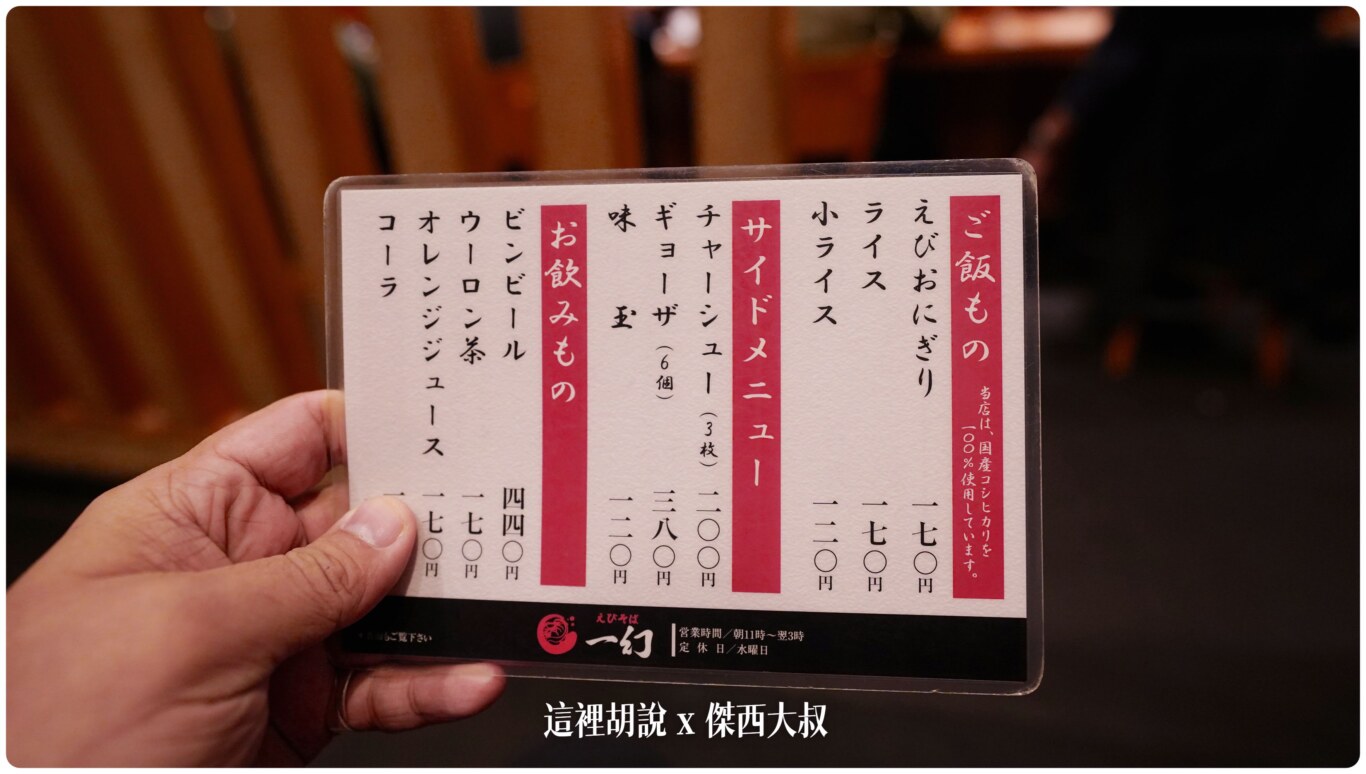 ご飯もの
当店は、国産コシヒカリを
一〇〇％使用しています。
えびおにぎり 一七〇円
ライス 一七〇円
小ライス 一二〇円
サイドメニュー
チャーシュー（3枚） 二〇〇円
ギョーザ（6個） 三八〇円
味玉 一二〇円
お飲みもの
ビンビール 四四〇円
ウーロン茶 一七〇円
オレンジジュース 一七〇円
コーラ
ご覧下さい
えびそば
一幻
営業時間／朝11時～翌3時
定休日／水曜日
這裡胡說 x 傑西大叔